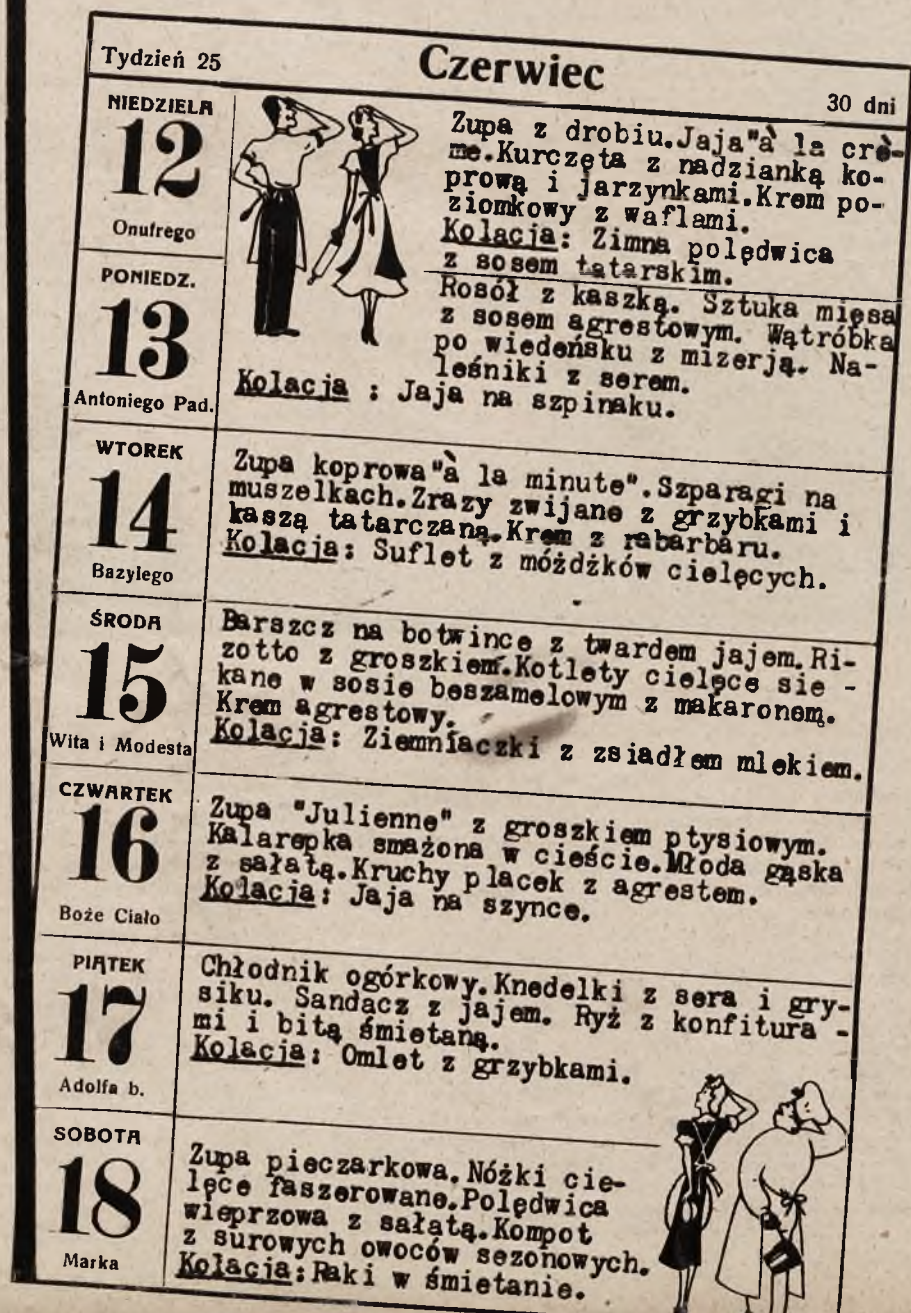 Tydzień 25
Czerwiec
30 dni
NIEDZIELA
12
Onufrego
Zupa z drobiu.Jaja"à la crè-
me.Kurczęta z nadzianką ko-
prową i jarzynkami.Krem po-
ziomkowy z waflami.
Kolacja: Zimna polędwica
z sosem tatarskim.
PONIEDZ.
13
Antoniego Pad.
Rosół z kaszką. Sztuka mięsa
z sosem agrestowym. Wątróbka
po wiedeńsku z mizerją. Na-
leśniki z serem.
Kolacja : Jaja na szpinaku.
WTOREK
14
Bazylego
Zupa koprowa"à la minute".Szparagi na
muszelkach.Zrazy zwijane z grzybkami i
kaszą tatarczaną.Krem z rabarbaru.
Kolacja: Suflet z móżdżków cielęcych.
ŚRODA
15
Wita i Modesta
Barszcz na botwince z twardem jajem.Ri-
zotto z groszkiem.Kotlety cielęce sie -
kane w sosie beszamelowym z makaronem.
Krem agrestowy.
Kolacja: Ziemniaczki z zsiadłem mlekiem.
CZWARTEK
16
Boże Ciało
Zupa "Julienne" z groszkiem ptysiowym.
Kalarepka smażona w cieście.Młoda gąska
z sałatą.Kruchy placek z agrestem.
Kolacja: Jaja na szynce.
PIĄTEK
17
Adolfa b.
Chłodnik ogórkowy.Knedelki z sera i gry-
siku. Sandacz z jajem. Ryż z konfitura -
mi i bitą śmietaną.
Kolacja: Omlet z grzybkami.
SOBOTA
18
Marka
Zupa pieczarkowa.Nóżki cie-
lęce faszerowane.Polędwica
wieprzowa z sałatą.Kompot
z surowych owoców sezonowych.
Kolacja:Raki w śmietanie.